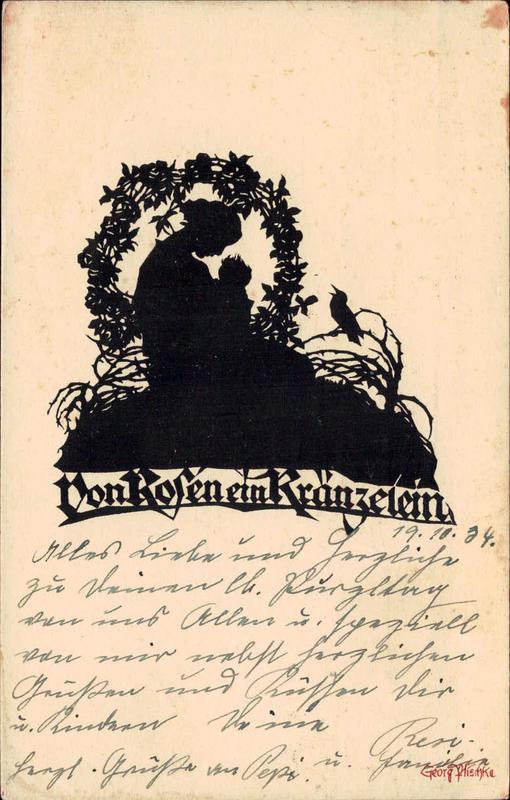 Von Rosen ein Kränzelein
19.10.34.
Alles Liebe und Herzliche
zu Deinem lb. Purzltag
von uns Allen u. speziell
von mir nebst herzlichen
Grüßen und Küssen Dir
u. Kindern Deine
Resi.
herzl. Grüße an Pepi. u. Familie
Georg Plischke